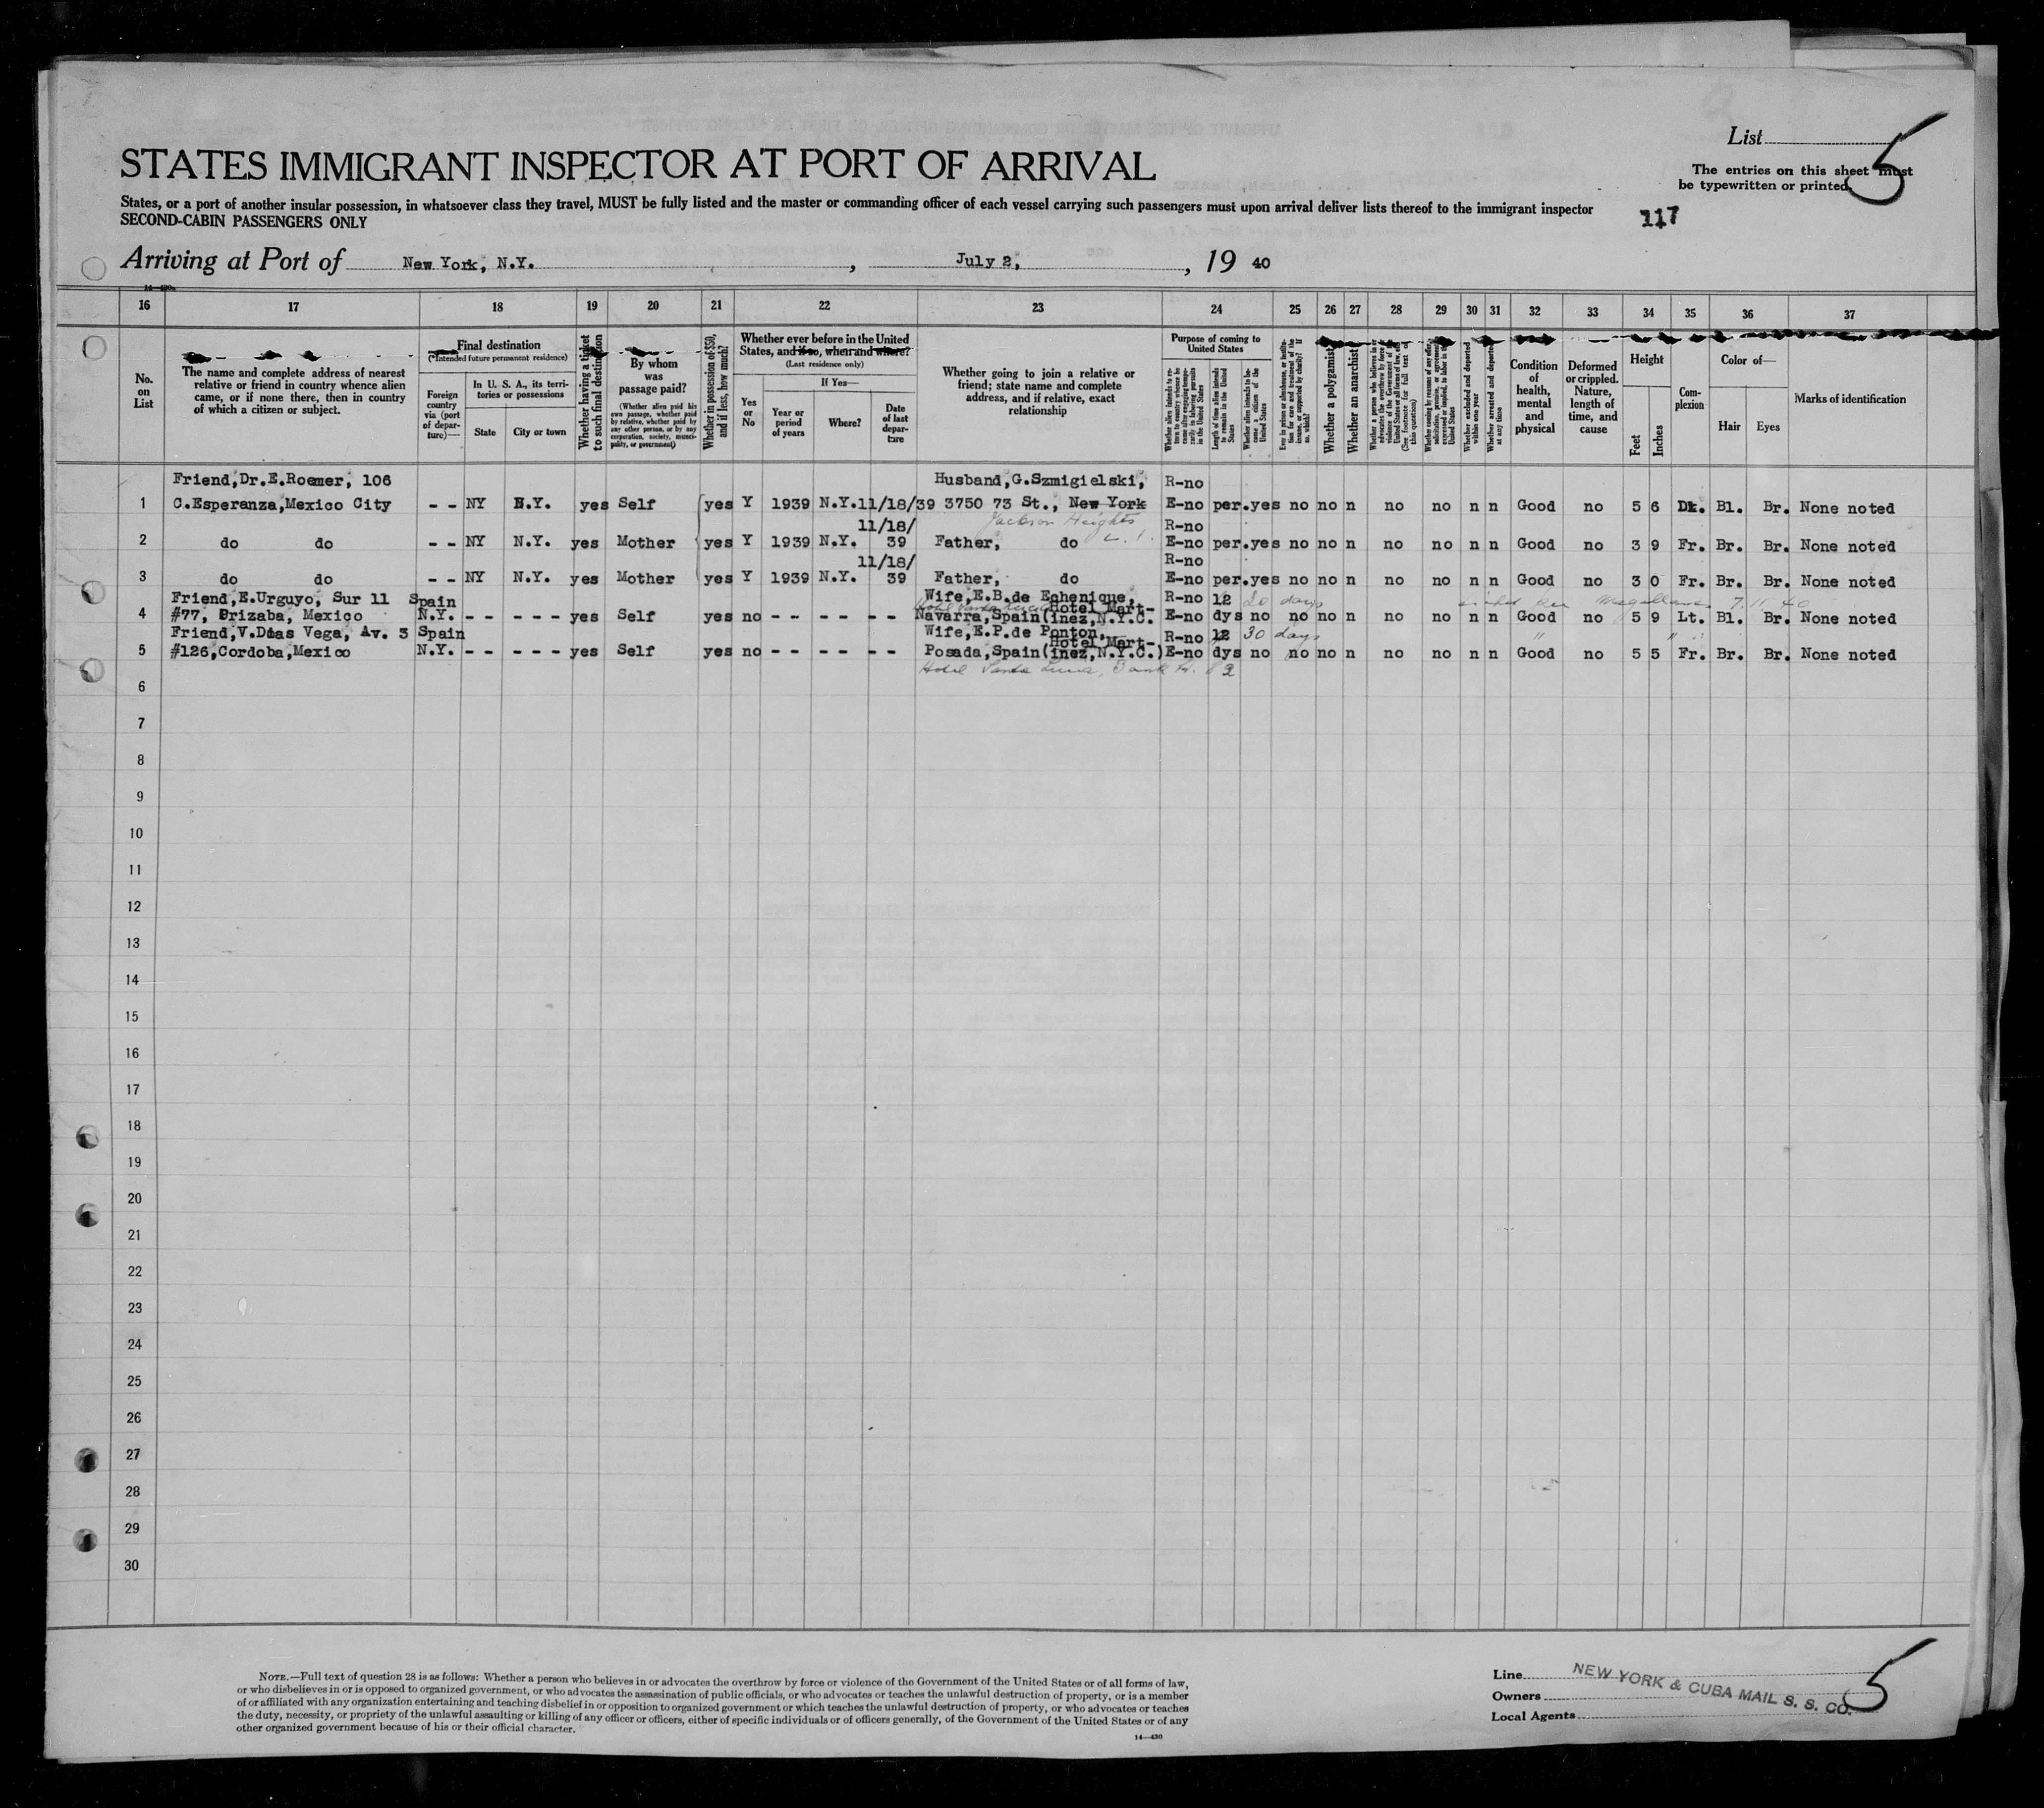 List
5
The entries on this sheet must
be typewritten or printed.
STATES IMMIGRANT INSPECTOR AT PORT OF ARRIVAL
States, or a port of another insular possession, in whatsoever class they travel, MUST be fully listed and the master or commanding officer of each vessel carrying such passengers must upon arrival deliver lists thereof to the immigrant inspector
SECOND-CABIN PASSENGERS ONLY
117
Arriving at Port of New York, N.Y., July 2, , 19 40
14—430
16 17 18 19 20 21 22 23 24 25 26 27 28 29 30 31 32 33 34 35 36 37
No. on List
The name and complete address of nearest
relative or friend in country whence alien
came, or if none there, then in country
of which a citizen or subject.
Final destination
(*Intended future permanent residence)
Foreign country via (port of departure)—
In U. S. A., its territories or possessions
State
City or town
Whether having a ticket to such final destination
By whom was passage paid?
(Whether alien paid his own passage, whether paid by relative, whether paid by any other person, or by any corporation, society, municipality, or government)
Whether in possession of $50, and if less, how much?
Whether ever before in the United
States, and if so, when and where?
(Last residence only)
Yes or No
If Yes—
Year or period of years
Where?
Date of last departure
Whether going to join a relative or
friend; state name and complete
address, and if relative, exact
relationship
Purpose of coming to United States
Length of time alien intends to remain in the United States
Whether alien intends to become a citizen of the United States
Whether a polygamist
Whether an anarchist
Whether excluded and deported within one year
Whether arrested and deported at any time
Condition of health, mental and physical
Deformed or crippled. Nature, length of time, and cause
Height
Feet
Inches
Complexion
Color of—
Hair
Eyes
Marks of identification
Friend,Dr.E.Roemer, 106 Husband,G.Szmigielski, R-no
1 C.Esperanza,Mexico City - - NY N.Y. yes Self yes Y 1939 N.Y.11/18/39 3750 73 St., New York E-no per.yes no no n no no n n Good no 5 6 Dk. Bl. Br. None noted
11/18/ Jackson Heights L.I. R-no
2 do do - - NY N.Y. yes Mother yes Y 1939 N.Y. 39 Father, do E-no per.yes no no n no no n n Good no 3 9 Fr. Br. Br. None noted
11/18/ R-no
3 do do - - NY N.Y. yes Mother yes Y 1939 N.Y. 39 Father, do E-no per.yes no no n no no n n Good no 3 0 Fr. Br. Br. None noted
Friend,E.Urguyo, Sur 11 Spain Wife,E.B.de Echenique, Hotel Mart- R-no 12 20 days
4 #77, Orizaba, Mexico N.Y. - - - - - yes Self yes no - - - - - - Navarra,Spain(inez,N.Y.C. E-no dys no no no n no no n n Good no 5 9 Lt. Bl. Br. None noted
Friend,V.Dias Vega, Av. 3 Spain Wife,E.P.de Ponton, Hotel Mart- R-no 12 30 days
5 #126,Cordoba,Mexico N.Y. - - - - - yes Self yes no - - - - - - Posada,Spain(inez,N.Y.C.)E-no dys no no no n no no n n Good no 5 5 Fr. Br. Br. None noted
Hotel Santa
6
7
8
9
10
11
12
13
14
15
16
17
18
19
20
21
22
23
24
25
26
27
28
29
30
NOTE.—Full text of question 28 is as follows: Whether a person who believes in or advocates the overthrow by force or violence of the Government of the United States or of all forms of law,
or who disbelieves in or is opposed to organized government, or who advocates the assassination of public officials, or who advocates or teaches the unlawful destruction of property, or is a member
of or affiliated with any organization entertaining and teaching disbelief in or opposition to organized government or which teaches the unlawful destruction of property, or who advocates or teaches
the duty, necessity, or propriety of the unlawful assaulting or killing of any officer or officers, either of specific individuals or of officers generally, of the Government of the United States or of any
other organized government because of his or their official character.
14—430
Line
Owners
Local Agents
NEW YORK & CUBA MAIL S. S. CO.
5